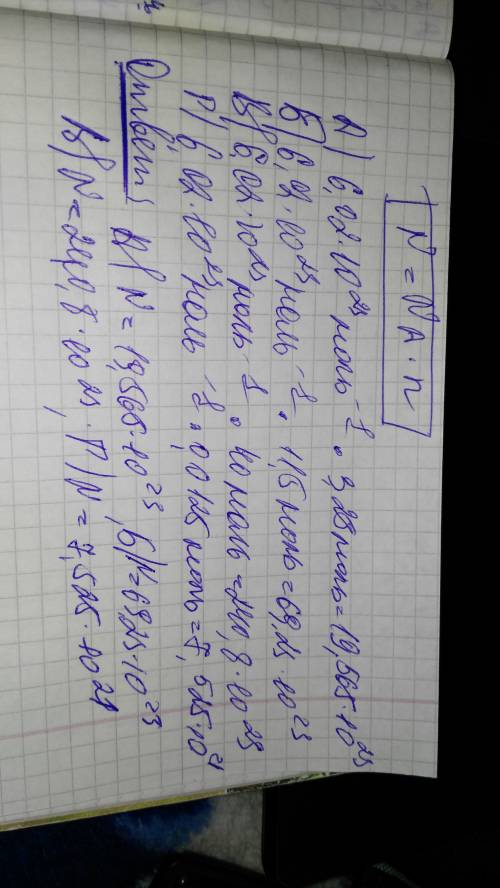 N = NA · n
А) 6,02·10²³ моль⁻¹ · 3,25 моль = 19,565·10²³
Б) 6,02·10²³ моль⁻¹ · 11,5 моль = 69,23·10²³
В) 6,02·10²³ моль⁻¹ · 40 моль = 240,8·10²³
Г) 6,02·10²³ моль⁻¹ · 0,0125 моль = 7,525·10²¹
Ответ: А) N = 19,565·10²³, Б) N = 69,23·10²³
В) N = 240,8·10²³, Г) N = 7,525·10²¹